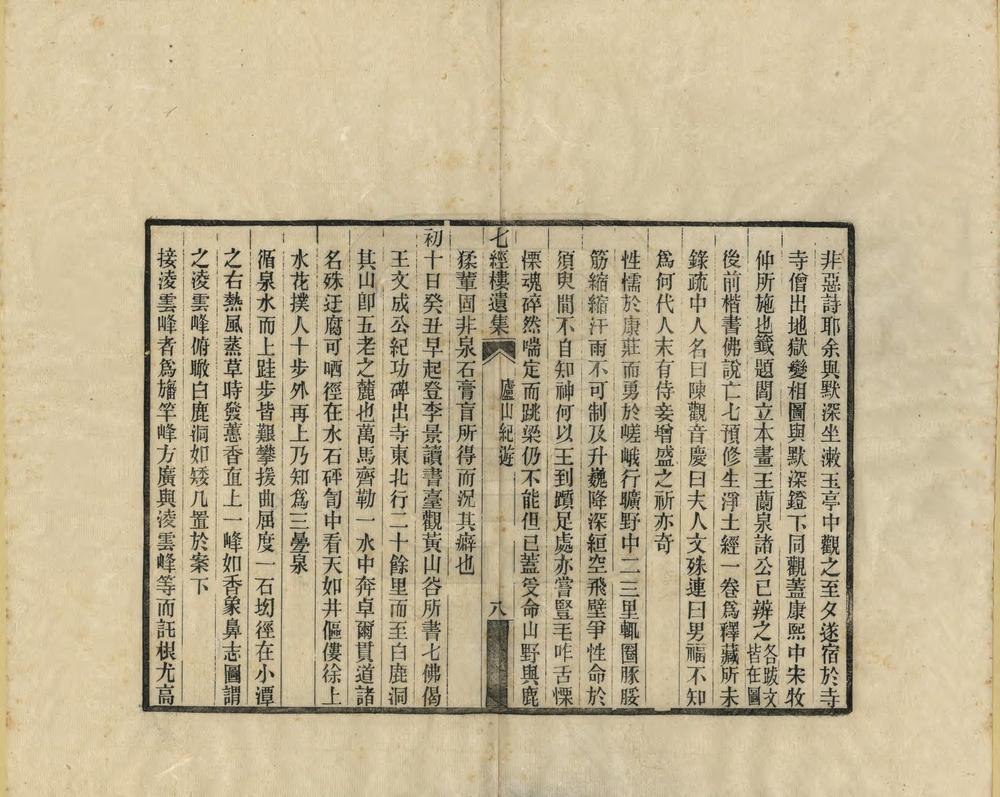 非惡詩耶余與默深坐漱玉亭中觀之至夕遂宿於寺
寺僧出地獄變相圖與默深鐙下同觀蓋康熙中宋牧
仲所施也籤題閻立本畫王蘭泉諸公已辨之各跋文皆在圖
後前楷書佛說亡七預修生淨土經一卷爲釋藏所未
錄疏中人名曰陳觀音慶曰夫人文殊連曰男福不知
爲何代人末有侍妾增盛之祈亦奇
性懦於康莊而勇於嵯峨行曠野中二三里輒圈豚腇
筋縮縮汗雨不可制及升巍降深絙空飛壁爭性命於
須臾間不自知神何以王到躓足處亦嘗豎毛咋舌慄
慄魂碎然喘定而跳梁仍不能但已蓋受命山野與鹿
七經樓遺集 廬山紀遊 八
猱輩固非泉石膏肓所得而況其癖也
初十日癸丑早起登李景讀書臺觀黃山谷所書七佛偈
王文成公紀功碑出寺東北行二十餘里而至白鹿洞
其山卽五老之麓也萬馬齊勒一水中奔卓爾貫道諸
名殊迂腐可哂徑在水石砰訇中看天如井傴僂徐上
水花撲人十步外再上乃知爲三疊泉
循泉水而上跬步皆艱攀援曲屈度一石㘭徑在小潭
之右熱風蒸草時發蕙香直上一峰如香象鼻志圖謂
之凌雲峰俯瞰白鹿洞如矮几置於案下
接凌雲峰者爲旛竿峰方廣與凌雲峰等而託根尤高